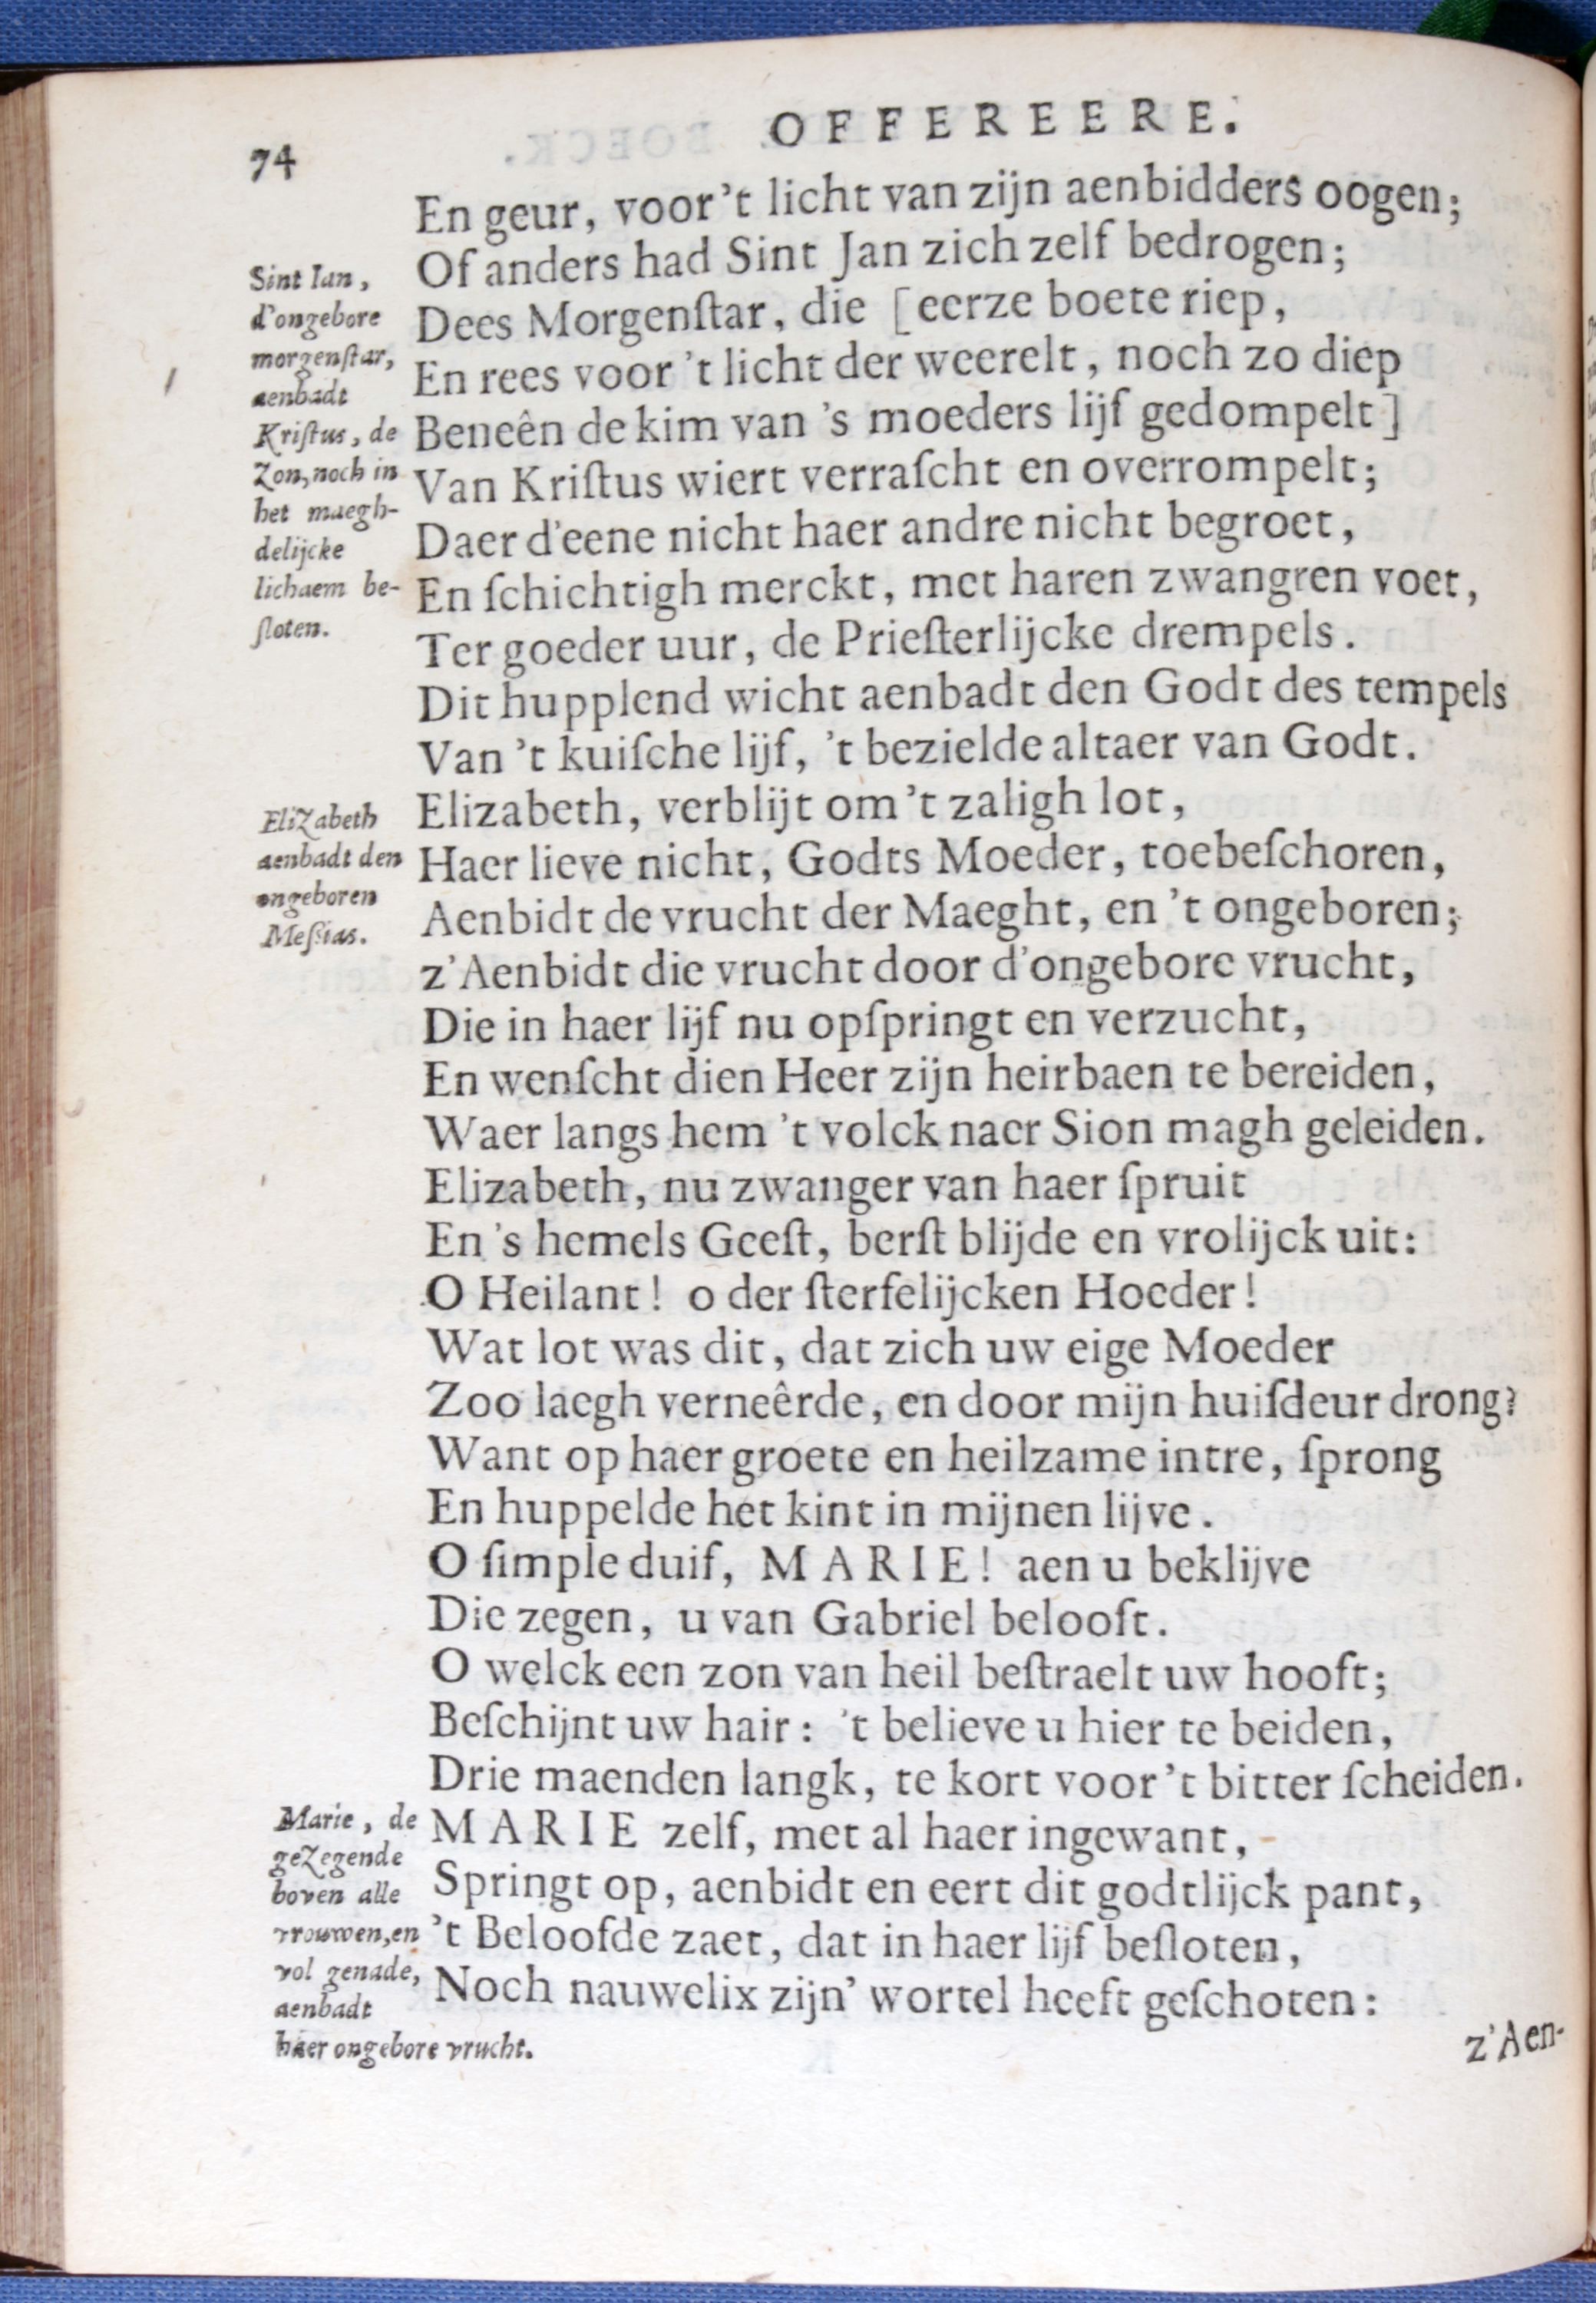 OFFEREERE.
74
En geur, voor 't licht van zijn aenbidders oogen;
Of anders had Sint Jan zich zelf bedrogen;
Dees Morgenſtar, die [eerze boete riep,
En rees voor 't licht der weerelt, noch zo diep
Beneên de kim van 's moeders lijf gedompelt]
Van Kriſtus wiert verraſcht en overrompelt;
Daer d'eene nicht haer andre nicht begroet,
En ſchichtigh merckt, met haren zwangren voet,
Ter goeder uur, de Prieſterlijcke drempels.
Dit hupplend wicht aenbadt den Godt des tempels
Van 't kuiſche lijf, 't bezielde altaer van Godt.
Elizabeth, verblijt om 't zaligh lot,
Haer lieve nicht, Godts Moeder, toebeſchoren,
Aenbidt de vrucht der Maeght, en 't ongeboren;
z'Aenbidt die vrucht door d'ongebore vrucht,
Die in haer lijf nu opſpringt en verzucht,
En wenſcht dien Heer zijn heirbaen te bereiden,
Waer langs hem 't volck naer Sion magh geleiden.
Elizabeth, nu zwanger van haer ſpruit
En 's hemels Geeſt, berſt blijde en vrolijck uit:
O Heilant! o der ſterfelijcken Hoeder!
Wat lot was dit, dat zich uw eige Moeder
Zoo laegh verneêrde, en door mijn huiſdeur drong?
Want op haer groete en heilzame intre, ſprong
En huppelde het kint in mijnen lijve.
O ſimple duif, MARIE! aen u beklijve
Die zegen, u van Gabriel belooft.
O welck een zon van heil beſtraelt uw hooft;
Beſchijnt uw hair: 't believe u hier te beiden,
Drie maenden langk, te kort voor 't bitter ſcheiden.
MARIE zelf, met al haer ingewant,
Springt op, aenbidt en eert dit godtlijck pant,
't Beloofde zaet, dat in haer lijf beſloten,
Noch nauwelix zijn' wortel heeft geſchoten:
z'Aen-
Sint Ian,
d'ongebore
morgenſtar,
aenbadt
Kriſtus, de
Zon, noch in
het maegh-
delijcke
lichaem be-
ſloten.
Elizabeth
aenbadt den
ongeboren
Meſsias.
Marie, de
gezegende
boven alle
vrouwen, en
vol genade,
aenbadt
haer ongebore vrucht.